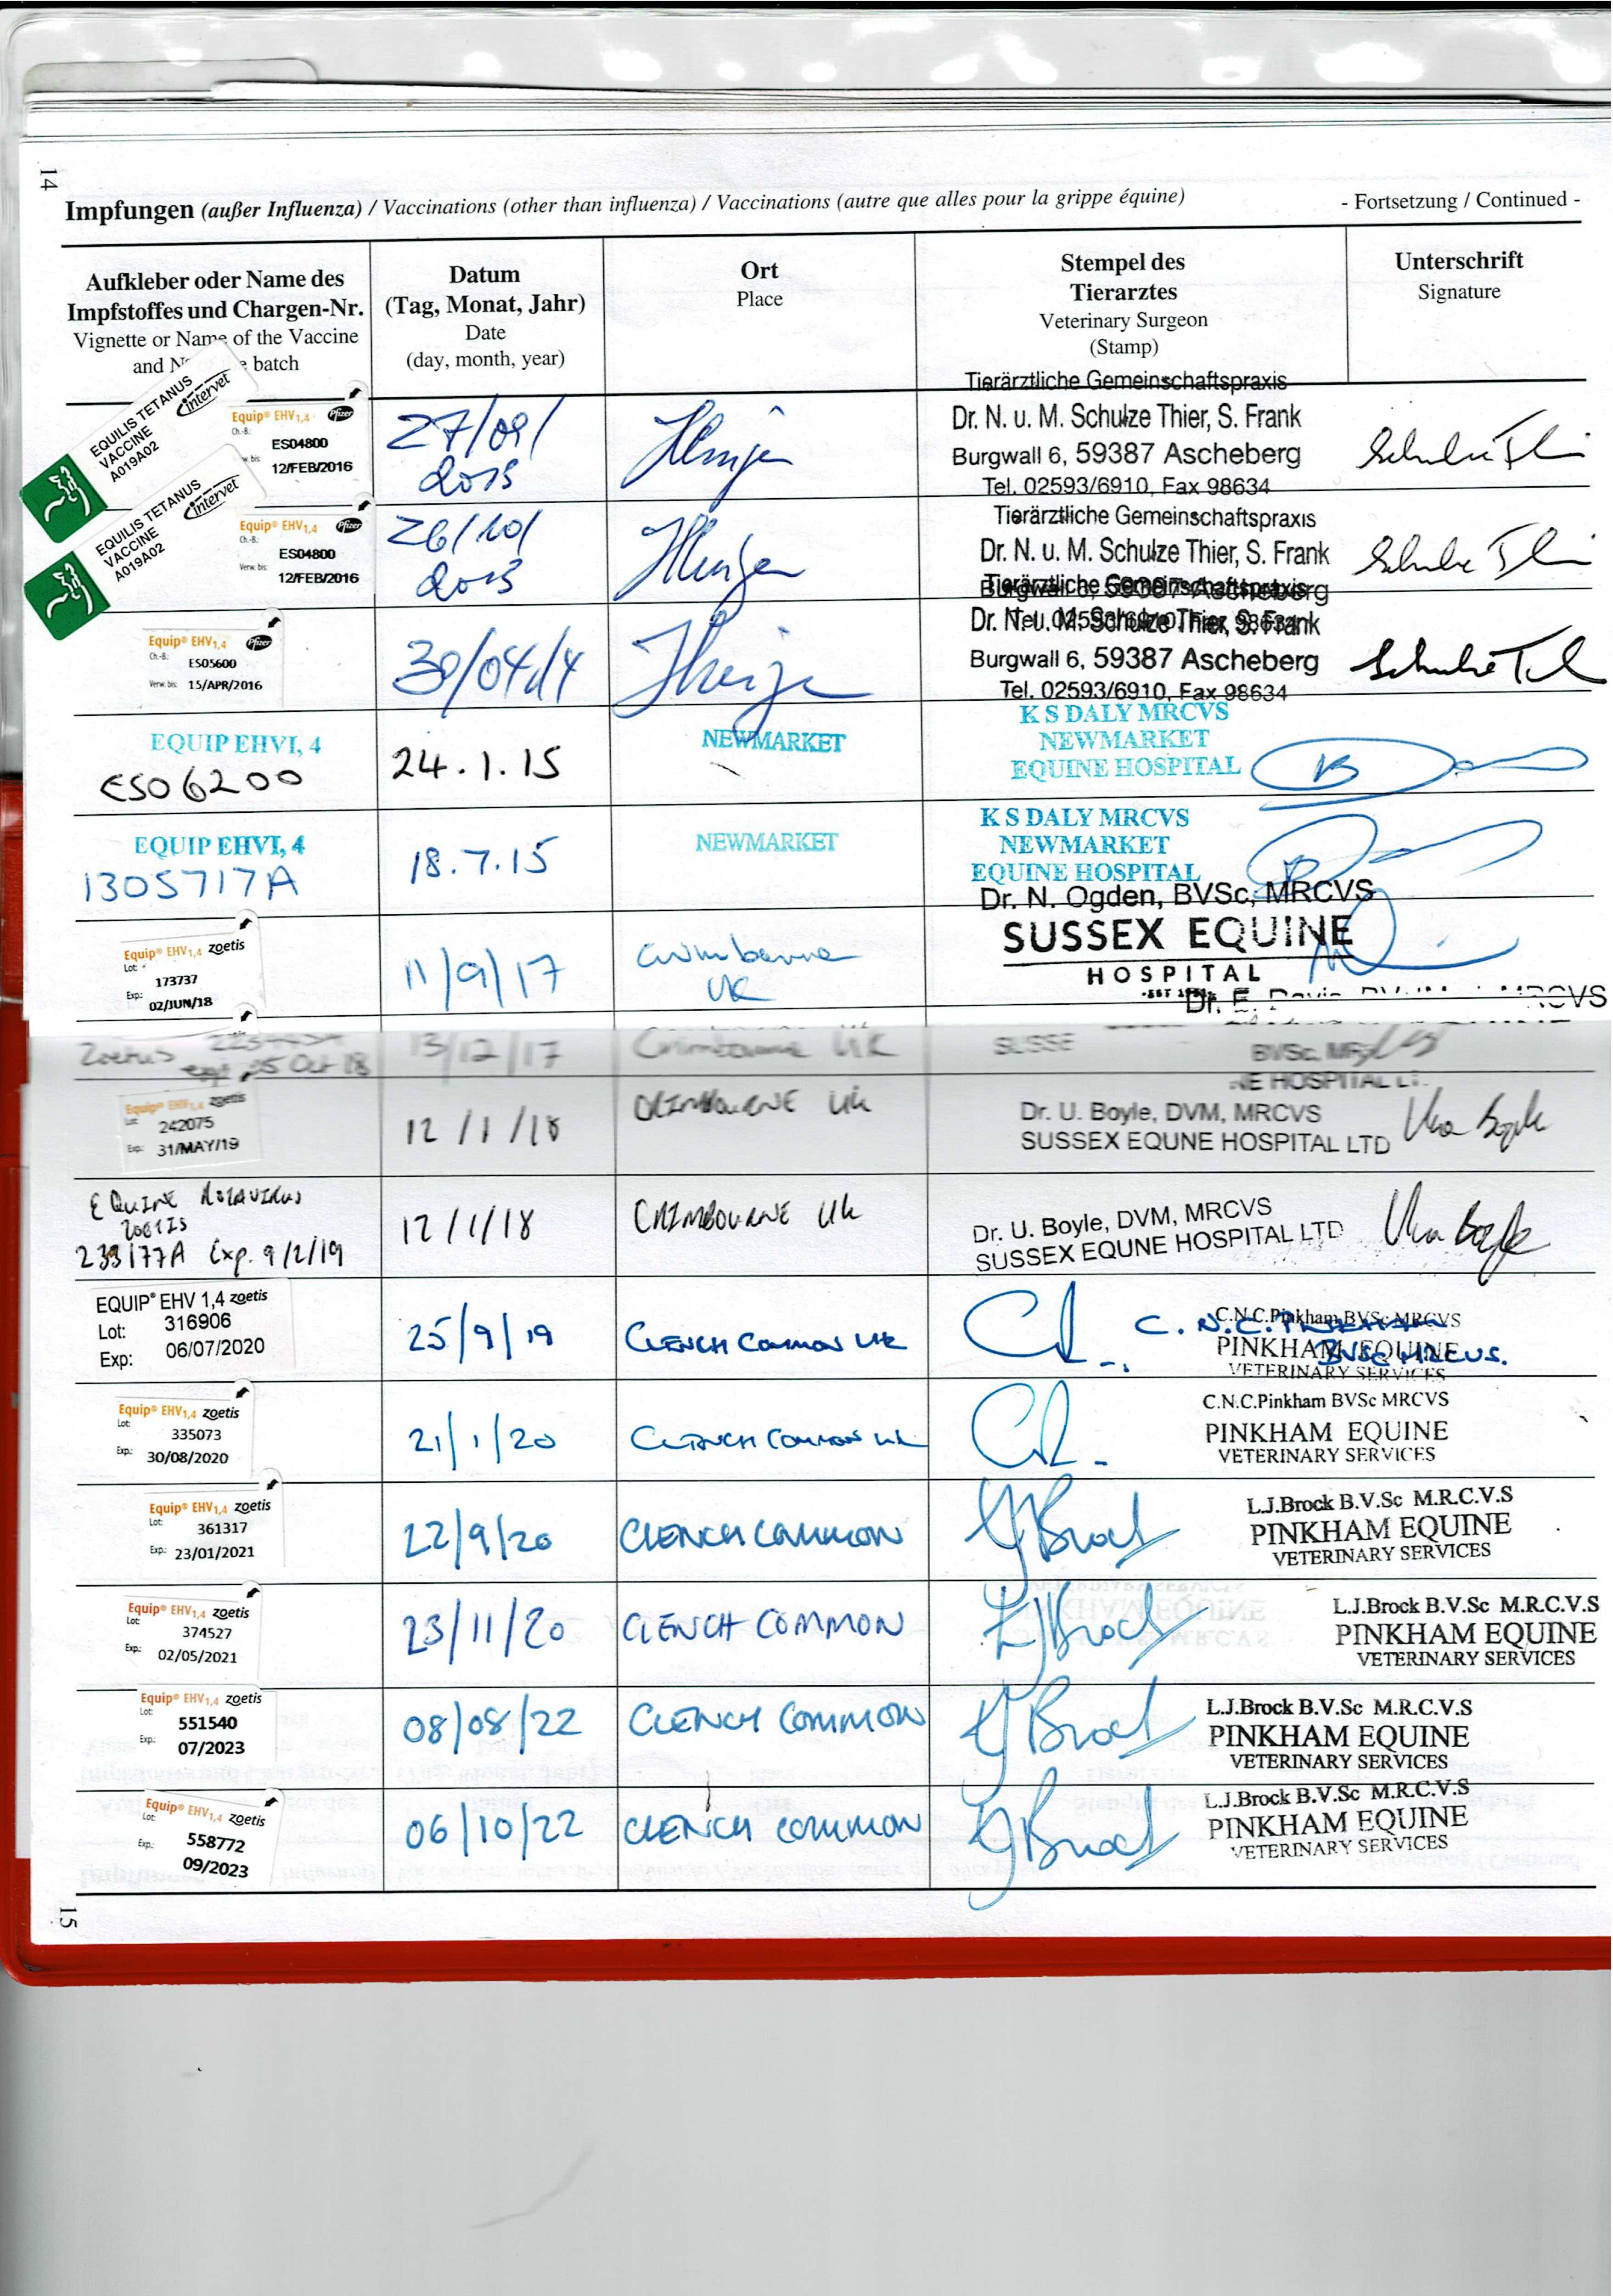 14
Impfungen (außer Influenza) / Vaccinations (other than influenza) / Vaccinations (autre que alles pour la grippe équine)
- Fortsetzung / Continued -
Aufkleber oder Name des
Impfstoffes und Chargen-Nr.
Vignette or Name of the Vaccine
and batch
Datum
(Tag, Monat, Jahr)
Date
(day, month, year)
Ort
Place
Stempel des
Tierarztes
Veterinary Surgeon
(Stamp)
Unterschrift
Signature
EQUILIS TETANUS
VACCINE
A019A02
Intervet
Equip® EHV1,4 Pfizer
Ch.-B.:
ES04800
w. bis: 12/FEB/2016
27/09/
2013
Tierärztliche Gemeinschaftspraxis
Dr. N. u. M. Schulze Thier, S. Frank
Burgwall 6, 59387 Ascheberg
Tel. 02593/6910, Fax 98634
Schulze Thi
EQUILIS TETANUS
VACCINE
A019A02
Intervet
Equip® EHV1,4 Pfizer
Ch.-B.:
ES04800
Verw. bis: 12/FEB/2016
26/10/
2013
Tierärztliche Gemeinschaftspraxis
Dr. N. u. M. Schulze Thier, S. Frank
Burgwall 6, 59387 Ascheberg
Tel. 02593/6910, Fax 98634
Equip® EHV1,4 Pfizer
Ch.-B.:
ES05600
Verw. bis: 15/APR/2016
30/04/14
Tierärztliche Gemeinschaftspraxis
Dr. N. u. M. Schulze Thier, S. Frank
Burgwall 6, 59387 Ascheberg
Tel. 02593/6910, Fax 98634
EQUIP EHVI, 4
ES06200
24.1.15
NEWMARKET
K S DALY MRCVS
NEWMARKET
EQUINE HOSPITAL
EQUIP EHVI, 4
1305717A
18.7.15
NEWMARKET
K S DALY MRCVS
NEWMARKET
EQUINE HOSPITAL
Equip® EHV1,4 zoetis
Lot:
173737
Exp: 02/JUN/18
11/9/17
Crimbourne
UK
Dr. N. Ogden, BVSc, MRCVS
SUSSEX EQUINE
HOSPITAL
Dr. E. MRCVS
Zoetis
05 Oct 18
13/12/17
Crimbourne UK
SUSSE
BVSc, MR
NE HOSPITAL L
Equip® EHV1,4 zoetis
Lot: 242075
Exp: 31/MAY/19
12/1/18
CRIMBOURNE UK
Dr. U. Boyle, DVM, MRCVS
SUSSEX EQUNE HOSPITAL LTD
Una Boyle
EQUINE ROTAVIRUS
ZOETIS
233177A Exp. 9/2/19
12/1/18
CRIMBOURNE UK
Dr. U. Boyle, DVM, MRCVS
SUSSEX EQUNE HOSPITAL LTD
Una Boyle
EQUIP® EHV 1,4 zoetis
Lot: 316906
Exp: 06/07/2020
25/9/19
CLENCH COMMON UK
C.N.C.Pinkham BVSc MRCVS
PINKHAM EQUINE
VETERINARY SERVICES
C. N. C. PINKHAM
BVSC MRCVS.
Equip® EHV1,4 zoetis
Lot:
335073
Exp.: 30/08/2020
21/1/20
CLENCH COMMON UK
C.N.C.Pinkham BVSc MRCVS
PINKHAM EQUINE
VETERINARY SERVICES
Equip® EHV1,4 zoetis
Lot: 361317
Exp.: 23/01/2021
22/9/20
CLENCH COMMON
LJBrock
L.J.Brock B.V.Sc M.R.C.V.S
PINKHAM EQUINE
VETERINARY SERVICES
Equip® EHV1,4 zoetis
Lot: 374527
Exp.: 02/05/2021
23/11/20
CLENCH COMMON
LJBrock
L.J.Brock B.V.Sc M.R.C.V.S
PINKHAM EQUINE
VETERINARY SERVICES
Equip® EHV1,4 zoetis
Lot:
551540
Exp.: 07/2023
08/08/22
CLENCH COMMON
LJBrock
L.J.Brock B.V.Sc M.R.C.V.S
PINKHAM EQUINE
VETERINARY SERVICES
Equip® EHV1,4 zoetis
Lot:
558772
Exp.: 09/2023
06/10/22
CLENCH COMMON
LJBrock
L.J.Brock B.V.Sc M.R.C.V.S
PINKHAM EQUINE
VETERINARY SERVICES
15